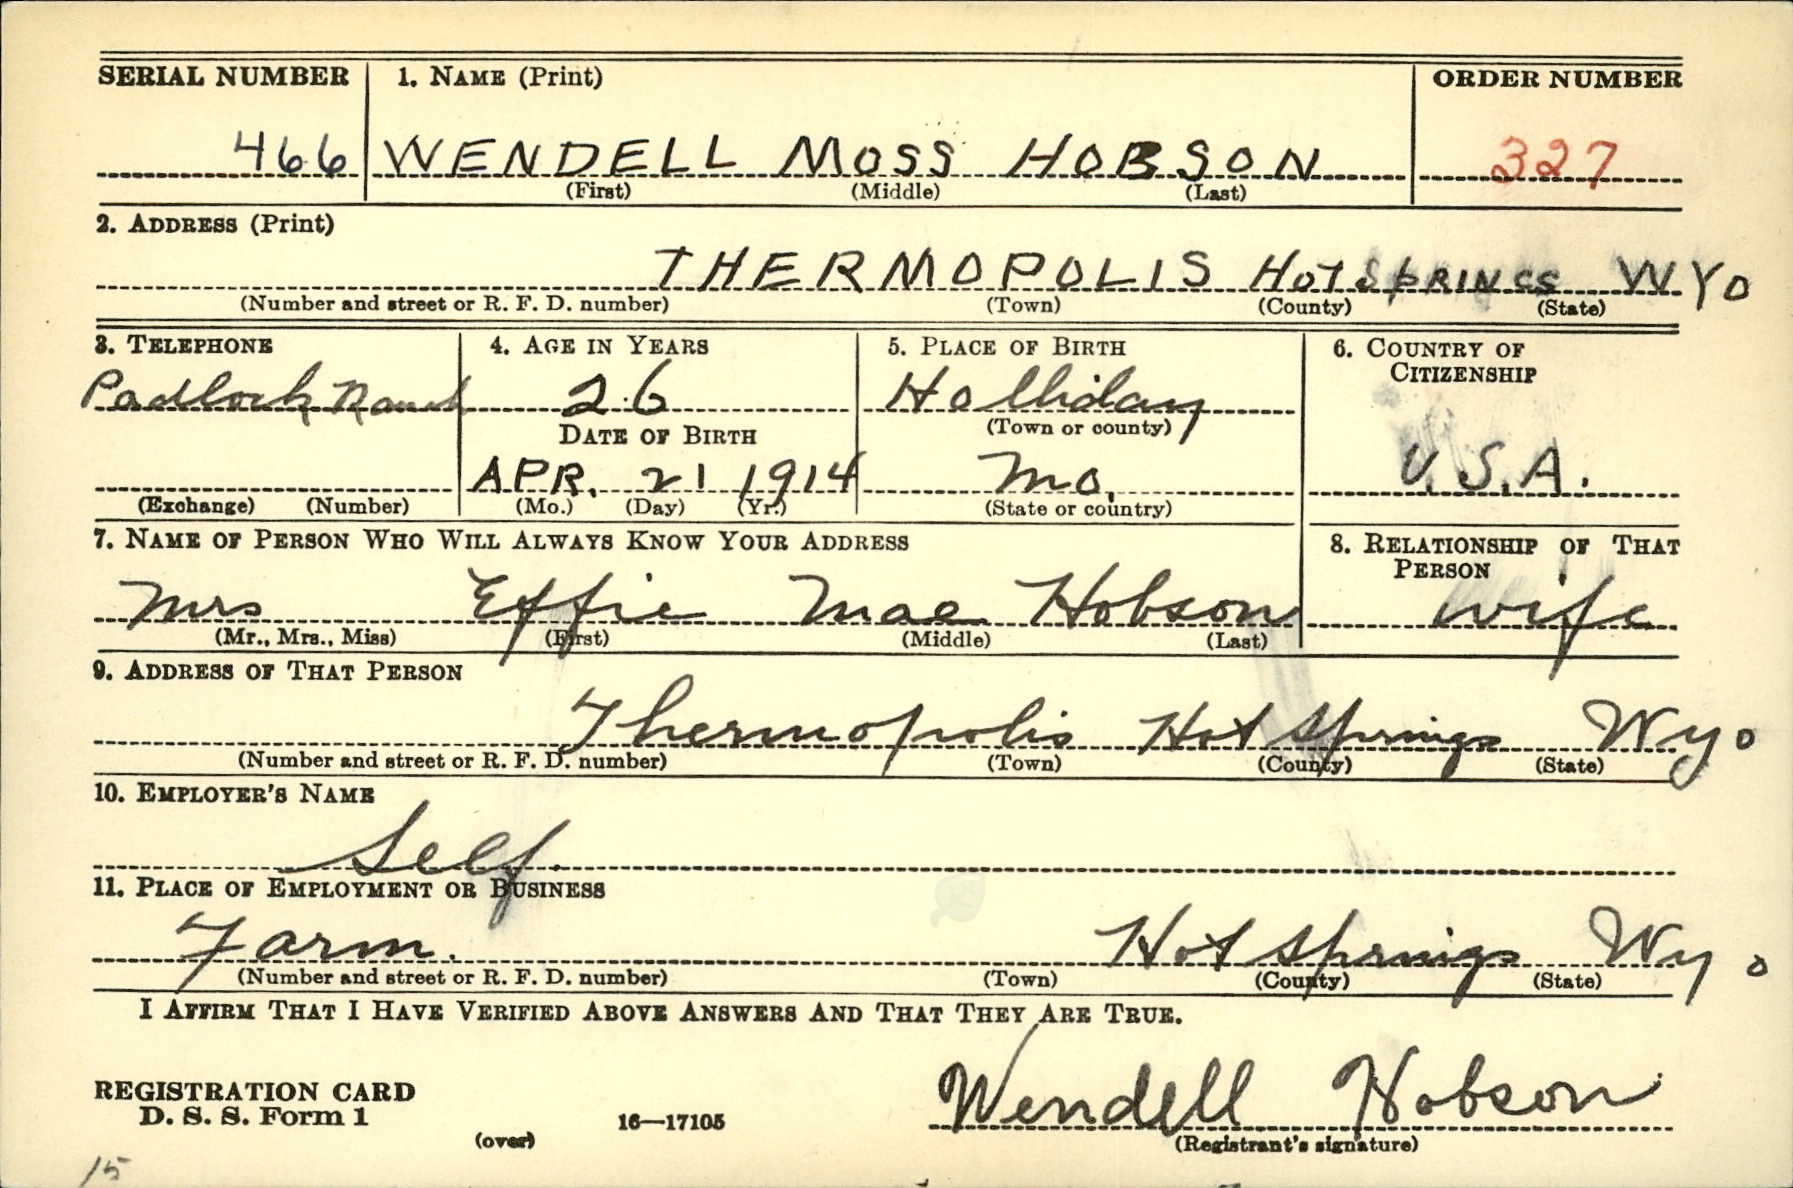 SERIAL NUMBER 1. NAME (Print) ORDER NUMBER
466 WENDELL MOSS HOBSON 327
(First) (Middle) (Last)
2. ADDRESS (Print)
THERMOPOLIS HOT SPRINGS WYO
(Number and street or R. F. D. number) (Town) (County) (State)
3. TELEPHONE 4. AGE IN YEARS 5. PLACE OF BIRTH 6. COUNTRY OF
CITIZENSHIP
Padlock Ranch 26 Holliday
DATE OF BIRTH (Town or county)
APR. 21 1914 Mo. U.S.A.
(Exchange) (Number) (Mo.) (Day) (Yr.) (State or country)
7. NAME OF PERSON WHO WILL ALWAYS KNOW YOUR ADDRESS 8. RELATIONSHIP OF THAT
PERSON
Mrs Effie Mae Hobson wife
(Mr., Mrs., Miss) (First) (Middle) (Last)
9. ADDRESS OF THAT PERSON
Thermopolis Hot Springs Wyo
(Number and street or R. F. D. number) (Town) (County) (State)
10. EMPLOYER'S NAME
Self.
11. PLACE OF EMPLOYMENT OR BUSINESS
Farm. Hot Springs Wyo
(Number and street or R. F. D. number) (Town) (County) (State)
I AFFIRM THAT I HAVE VERIFIED ABOVE ANSWERS AND THAT THEY ARE TRUE.
REGISTRATION CARD
D. S. S. Form 1 16—17105 Wendell Hobson
(over) (Registrant's signature)
15